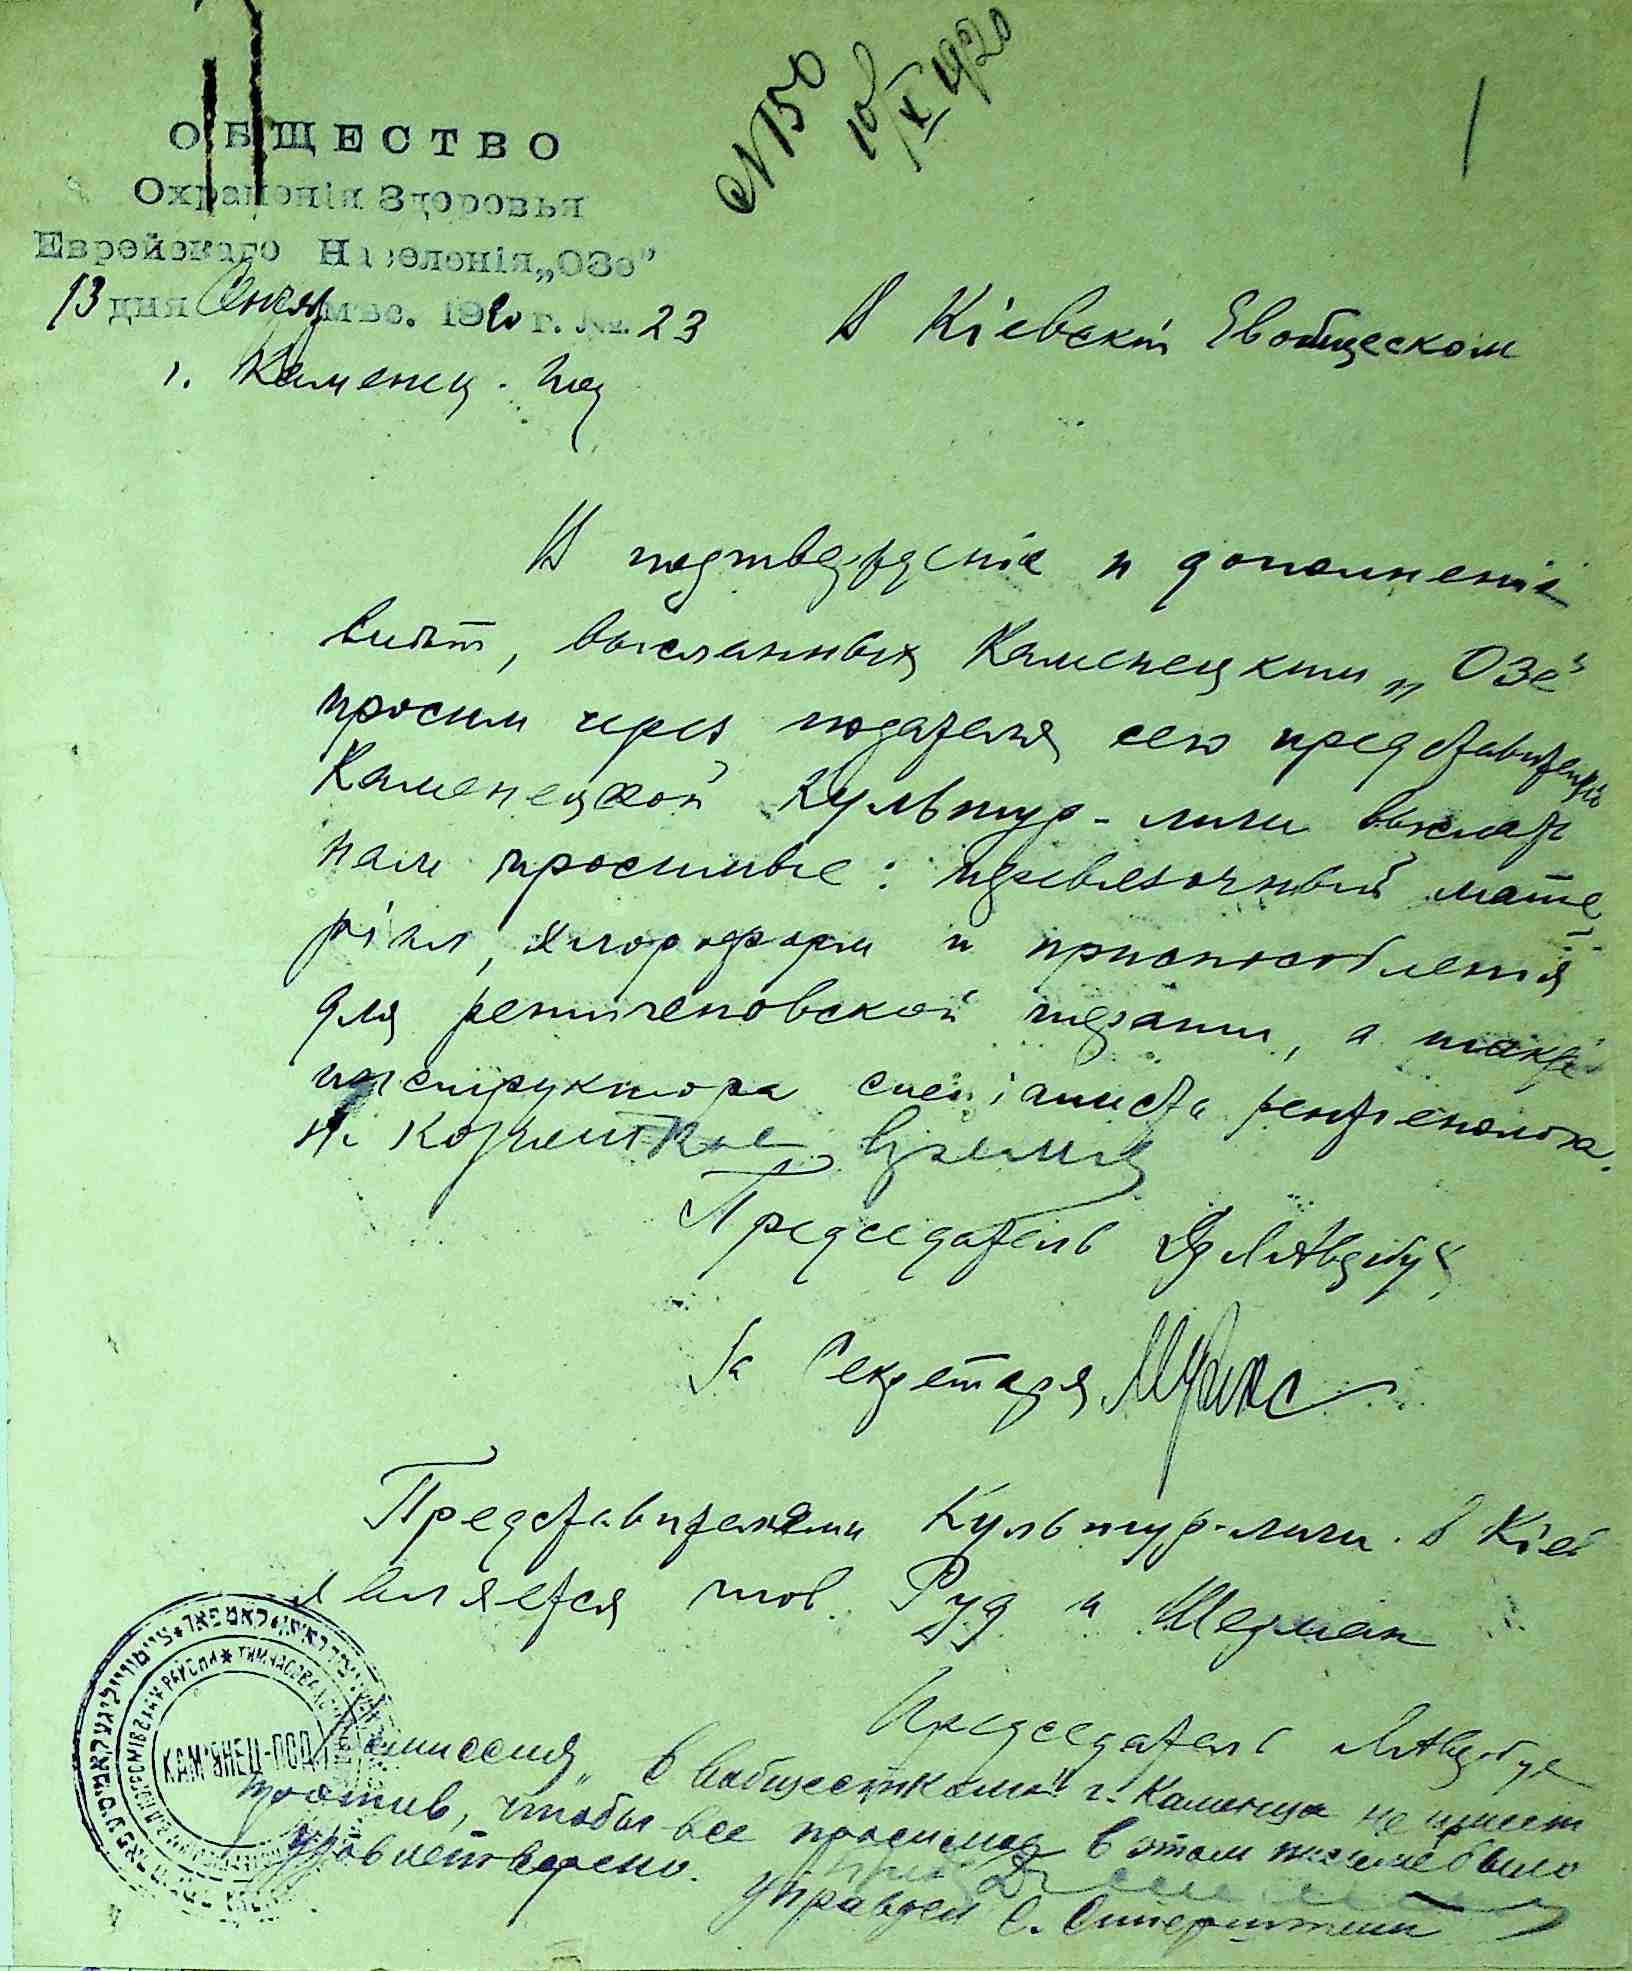 № 150
10/X 1920
1
ОБЩЕСТВО
Охраненія Здоровья
Еврейскаго Населенія „ОЗе"
13 дня Сентяб мѣс. 1920 г. № 23
г. Каменец-Под
В Кіевскій Евобщеском
В подтвержденіе и дополненіе
высланных Каменецким „ОЗе"
просим через подателя сего представителю
Каменецкой Культур-лиги выслать
нам просимые: перевязочный мате
ріал, хлороформ и приспособленія
для рентгеновской а также
инструктора спеціалиста рентгенолога
на короткое время
Председатель Др
За Секретаря
Представителями Культур-лиги в Кіев
является тов. Руд и Шерман
Председатель
Комиссия „Евобщестком" г. Каменца не имеет
против, чтобы все просимое в этом письме было
удовлетворено.
КАМ'ЯНЕЦ-ПОД
Управдел С.